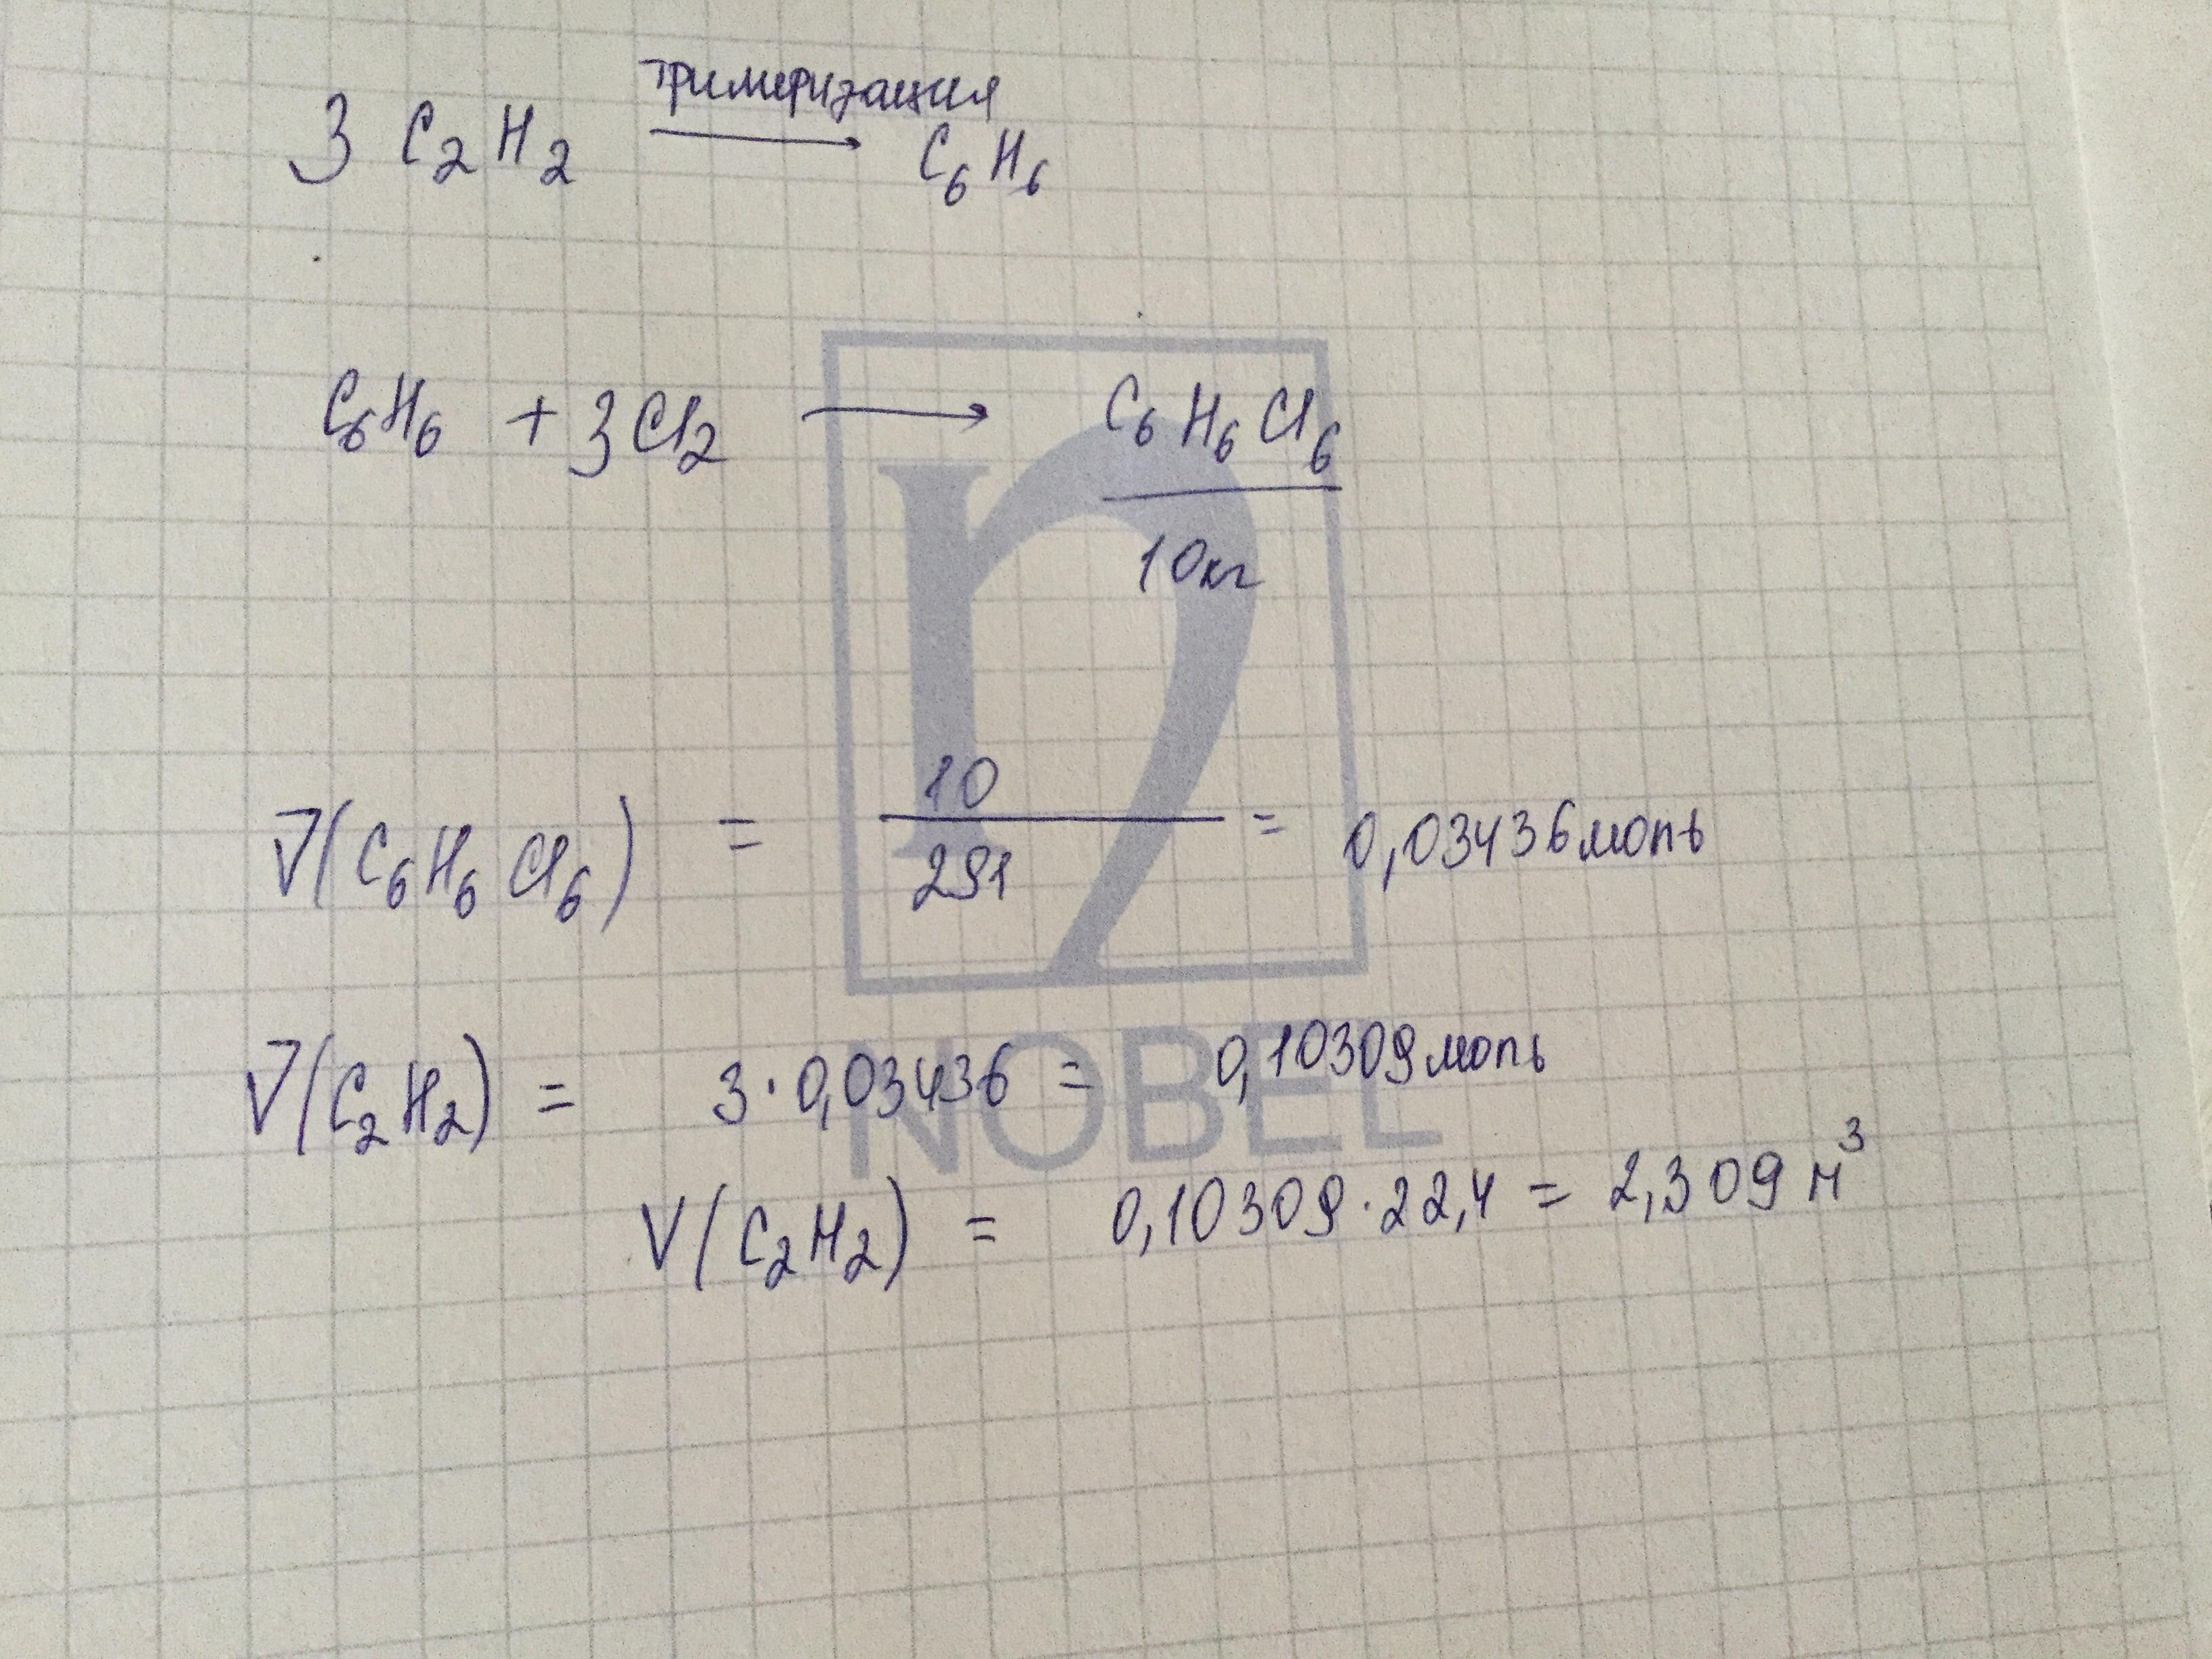 3 C₂H₂ тримеризация → C₆H₆
C₆H₆ + 3Cl₂ → C₆H₆Cl₆
10кг
ν(C₆H₆Cl₆) = 10/291 = 0,03436 моль
ν(C₂H₂) = 3·0,03436 = 0,10309 моль
V(C₂H₂) = 0,10309·22,4 = 2,309 м³
n
NOBEL